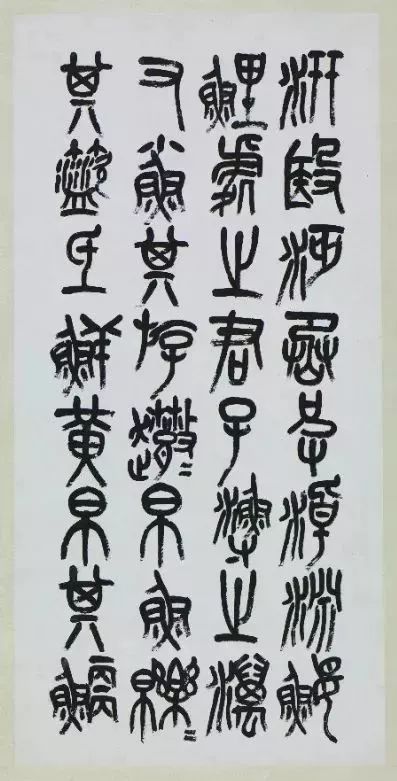 汧殹沔丞皮淖淵鰋
鯉處之君子漁之澫
又小魚其斿帛魚皪=
其氐鮮黃帛其鯾